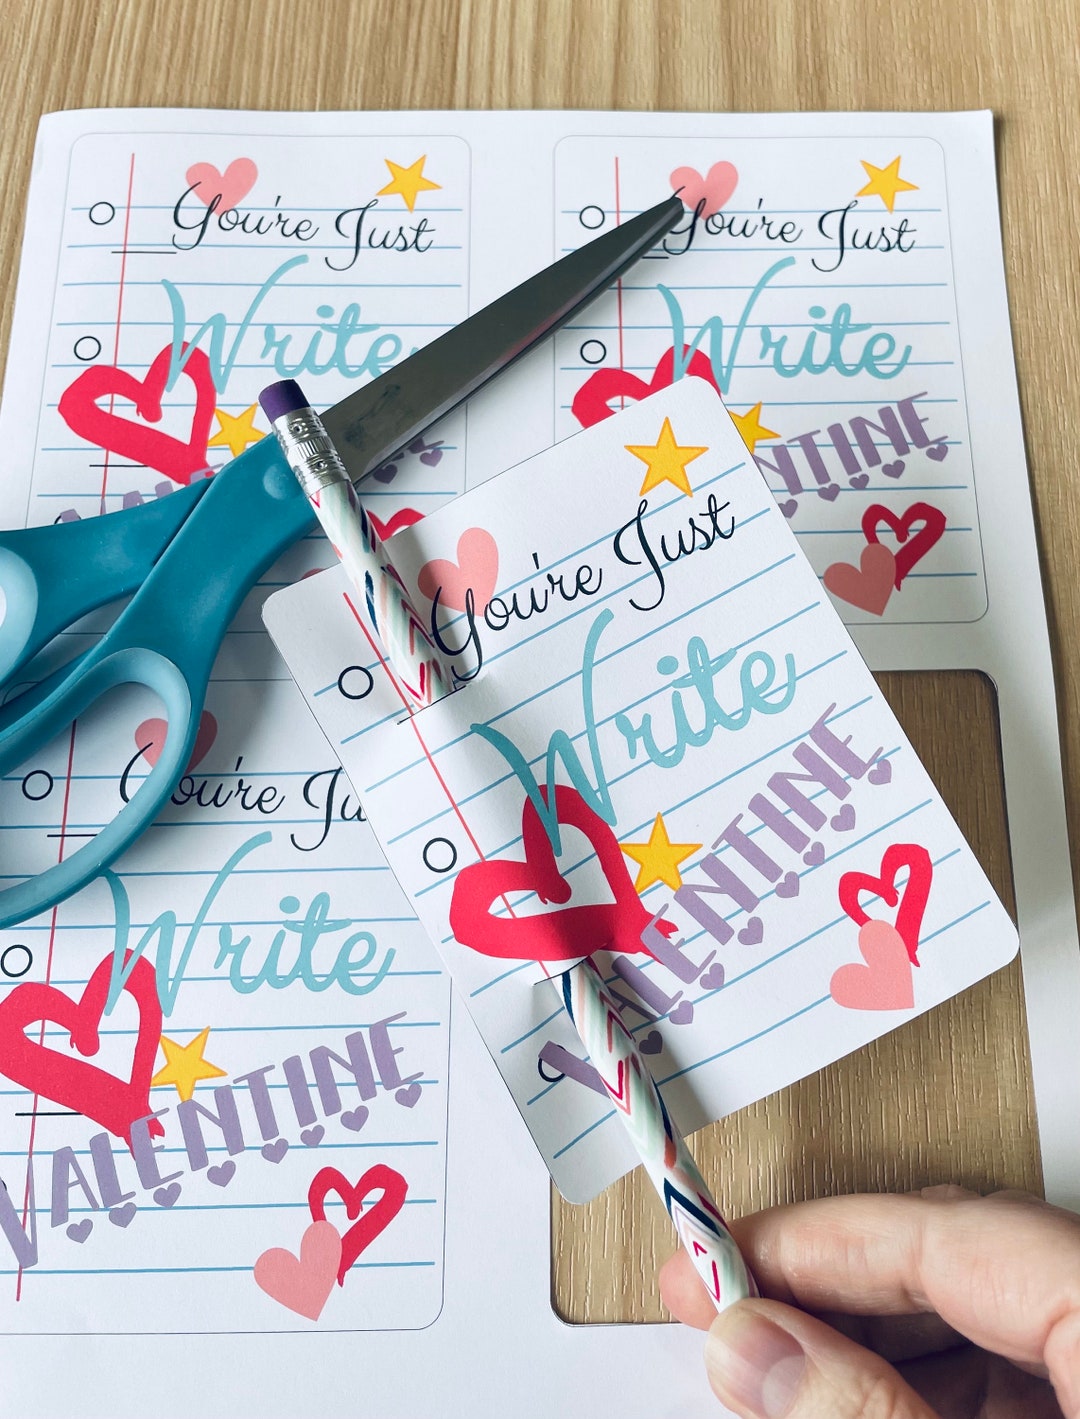 You're Just
Write
You're Just
Write
NTINE
You're Just
Write
VALENTINE
You're Ju
Write
VALENTINE